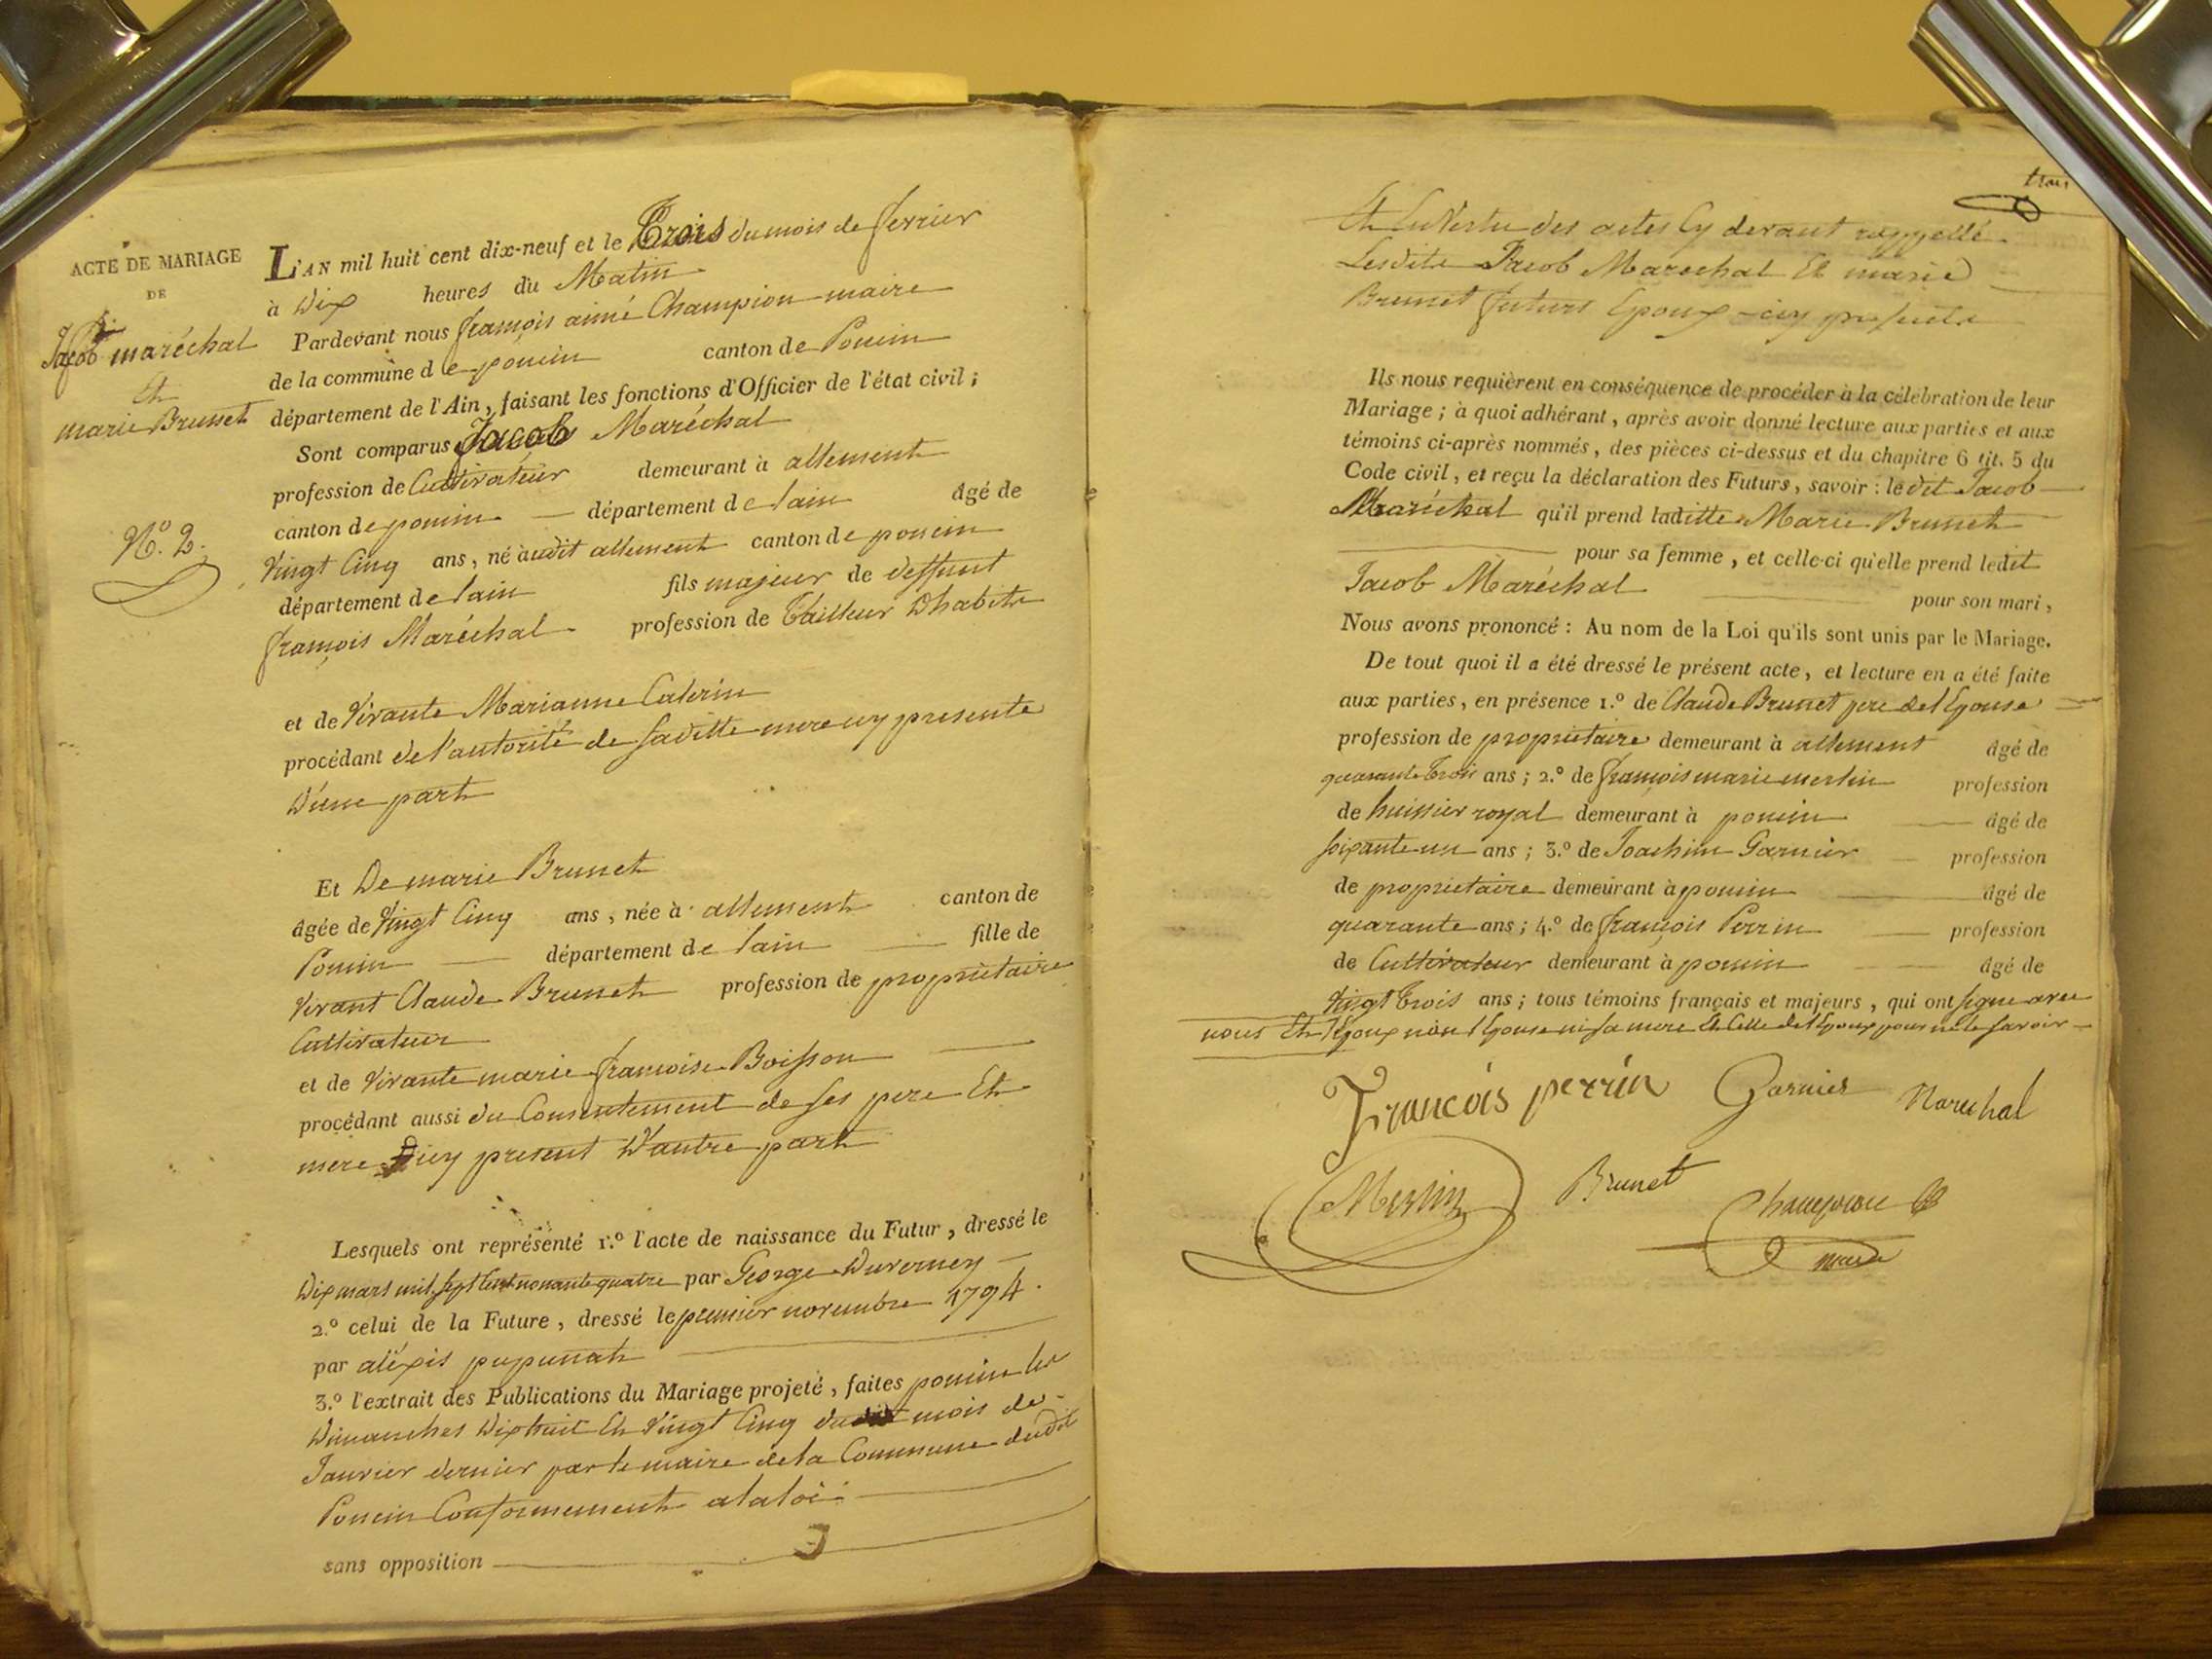 ACTE DE MARIAGE
DE
Jacob maréchal
Et
marie Brunet
N.º 2.
L'AN mil huit cent dix-neuf et le Trois du mois de fevrier
à Dix heures du Matin
Pardevant nous françois aimé Champion maire
de la commune de poncin canton de Poncin
département de l'Ain, faisant les fonctions d'Officier de l'état civil;
Sont comparus Jacob Maréchal
profession de Cultivateur demeurant à allement
canton de poncin département de lain âgé de
Vingt Cinq ans, né audit allement canton de poncin
département de lain fils majeur de deffunt
françois Maréchal profession de Tailleur Dhabits
et de Vivante Marianne
procédant de l'autorité de saditte mere icy presente
D'une part
Et De marie Brunet
âgée de Vingt Cinq ans, née à allement canton de
Poncin département de lain fille de
Vivant Claude Brunet profession de proprietaire
Cultivateur
et de Vivante marie francoise Boisson
procédant aussi du Consentement de ses pere Et
mere icy present D'autre part
Lesquels ont représenté 1.º l'acte de naissance du Futur, dressé le
Dix mars mil sept Cent nonante quatre par George Duverney
2.º celui de la Future, dressé le premier novembre 1794.
par aléxis pupunat
3.º l'extrait des Publications du Mariage projeté, faites poncin les
Dimanches Dixhuit Et Vingt Cinq du mois de
Janvier dernier par le maire de la Commune dudit
Poncin Conformement a la loi
sans opposition
trois
Et En Vertu des actes Cy devant rappellé
Lesdits Jacob Marechal Et marie
Brunet futurs Epoux icy presents
Ils nous requièrent en conséquence de procéder à la célébration de leur
Mariage; à quoi adhérant, après avoir donné lecture aux parties et aux
témoins ci-après nommés, des pièces ci-dessus et du chapitre 6 tit. 5 du
Code civil, et reçu la déclaration des Futurs, savoir: le dit Jacob
Maréchal qu'il prend laditte Marie Brunet
pour sa femme, et celle-ci qu'elle prend ledit
Jacob Maréchal pour son mari,
Nous avons prononcé: Au nom de la Loi qu'ils sont unis par le Mariage.
De tout quoi il a été dressé le présent acte, et lecture en a été faite
aux parties, en présence 1.º de Claude Brunet pere de l'Epouse
profession de proprietaire demeurant à allement âgé de
quarante trois ans; 2.º de françois marie merlin profession
de huissier royal demeurant à poncin âgé de
soixante un ans; 3.º de Joachim Garnier profession
de proprietaire demeurant à poncin âgé de
quarante ans; 4.º de françois Perrin profession
de Cultivateur demeurant à poncin âgé de
Vingt Trois ans; tous témoins français et majeurs, qui ont signe avec
nous Et l'Epoux non l'Epouse ni sa mere Et Celle de l'Epoux pour ne le savoir
François perrin Garnier Marechal
Merlin Brunet Champion
maire